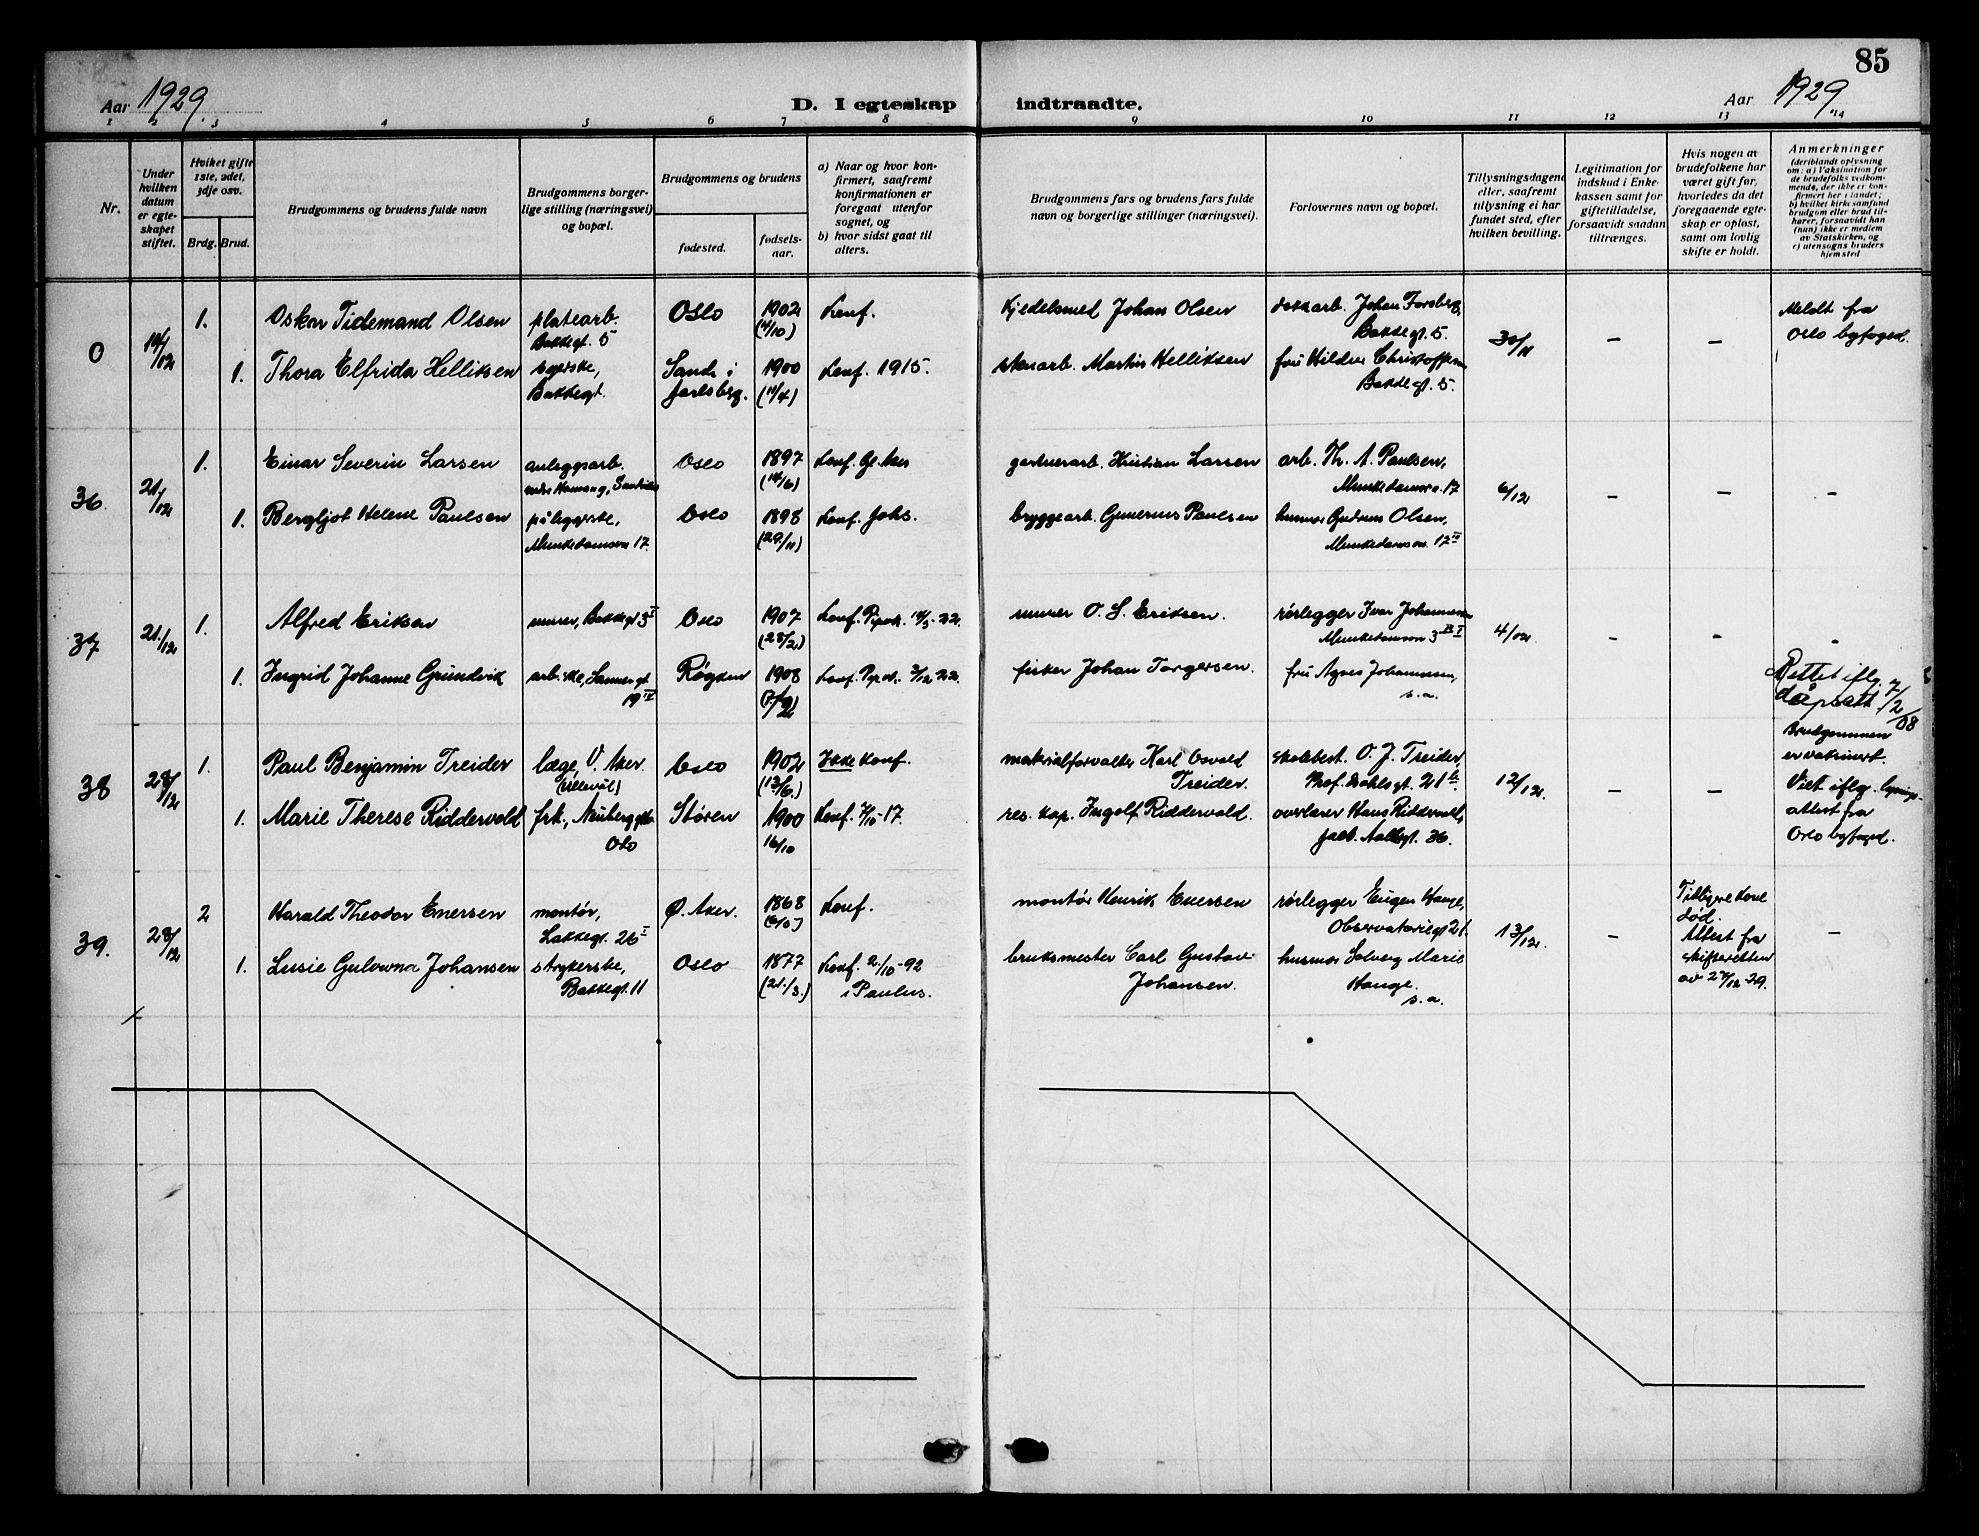 85
Aar 1929.
D. I egteskap indtraadte.
Aar 1929
1 2 3 4 5 6 7 8 9 10 11 12 13 14
Nr.
Under
hvilken
datum
er egte-
skapet
stiftet.
Hvilket gifte
1ste, 2det,
3dje osv.
Brdg. Brud.
Brudgommens og brudens fulde navn
Brudgommens borger-
lige stilling (næringsvei)
og bopæl.
Brudgommens og brudens
fødested.
fødsels-
aar.
a) Naar og hvor kon-
firmert, saafremt
konfirmationen er
foregaat utenfor
sognet, og
b) hvor sidst gaat til
alters.
Brudgommens fars og brudens fars fulde
navn og borgerlige stillinger (næringsvei).
Forlovernes navn og bopæl.
Tillysningsdagene
eller, saafremt
tillysning ei har
fundet sted, efter
hvilken bevilling.
Legitimation for
indskud i Enke-
kassen samt for
giftetilladelse,
forsaavidt saadan
tiltrænges.
Hvis nogen av
brudefolkene har
været gift før,
hvorledes da det
foregaaende egte-
skap er opløst,
samt om lovlig
skifte er holdt.
Anmerkninger
(deriblandt oplysning
om: a) Vaksination for
de brudefolks vedkom-
mende, der ikke er kon-
firmert her i landet;
b) hvilket kirkesamfund
brudgom eller brud til-
hører, forsaavidt han
(hun) ikke er medlem
av Statskirken, og
c) utensogns bruders
hjemsted
0
14/12
1.
Oskar Tidemand Olsen
platearb.
Bakkegt. 5
Oslo
1902
(11/10)
Konf.
Kjedelsmed Johan Olsen
dokkarb. Johan Forsberg,
Bakkegt. 5.
30/11
–
–
Meldt fra
Oslo byfoged.
1.
Thora Elfrida Helliksen
syerske,
Bakkegt.
Sande i
Jarlsberg.
1900
(11/4)
Konf. 1915.
stenarb. Martin Helliksen
fru Hilda
Bakkegt. 5.
36
21/12
1.
Einar Severin Larsen
anleggsarb.
Oslo
1897
(14/6)
Konf. Gl. Aker
gartnerarb. Kristian Larsen
arb. Th. A. Paulsen,
Munkedamsvn. 17
6/12
–
–
–
1.
Bergljot Helene Paulsen
påleggerske,
Munkedamsvn 17.
Oslo
1898
(29/11)
Konf. Johs.
bryggearb. Gunerius Paulsen
husmor Gudrun Olsen,
Munkedamsvn. 12 IV
37
21/12
1.
Alfred Eriksen
murer, Bakkegt 3 I
Oslo
1907
(28/2)
murer O. S. Eriksen.
rørlegger Ivar Johannesen
Munkedamsvn 3
4/12
-
-
-
1.
Ingrid Johanne Grundvik
arb.ske, Sannergt
19 IV
Røyken
1908
(7/2)
fisker Johan Torgersen.
fru Agnes Johannesen,
s. a.
Rettet iflg.
dåpsatt. 7/2/08
38
28/12
1.
Paul Benjamin Treider
læge, V. Aker
(Ullevål)
Oslo
1902
(13/6.)
Ikke konf.
materialforvalter Karl Osvald
Treider.
skolebest. O. J. Treider,
Prof. Dahlsgt. 21 b
12/12.
–
–
Brudgommen
er vaksinert.
Viet iflg. lysnings-
attest fra
Oslo byfoged.
1.
Marie Therese Riddervold
frk., Neuberggt.
Oslo
Støren
1900
16/10
res. kap. Ingolf Riddervold.
overlærer Hans Riddervold,
Jacob Aallsgt. 36.
39.
28/12
2
Harald Theodor Enersen
montør,
Lakkegt. 26 I
Ø. Aker.
1868
Konf.
montør Henrik Enersen
rørlegger Eugen Hauge,
Observatoriegt 21.
13/12.
–
Tidligere kone
død.
Attest fra
skifteretten
av 27/12-29.
–
1.
Lusie Gulowna Johansen
strykerske,
Bakkegt. 11
Oslo
1877
(21/3.)
Konf. 2/10-92
i Paulus.
bruksmester Carl Gustav
Johansen.
husmor Solveig Marie
Hauge.
s. a.